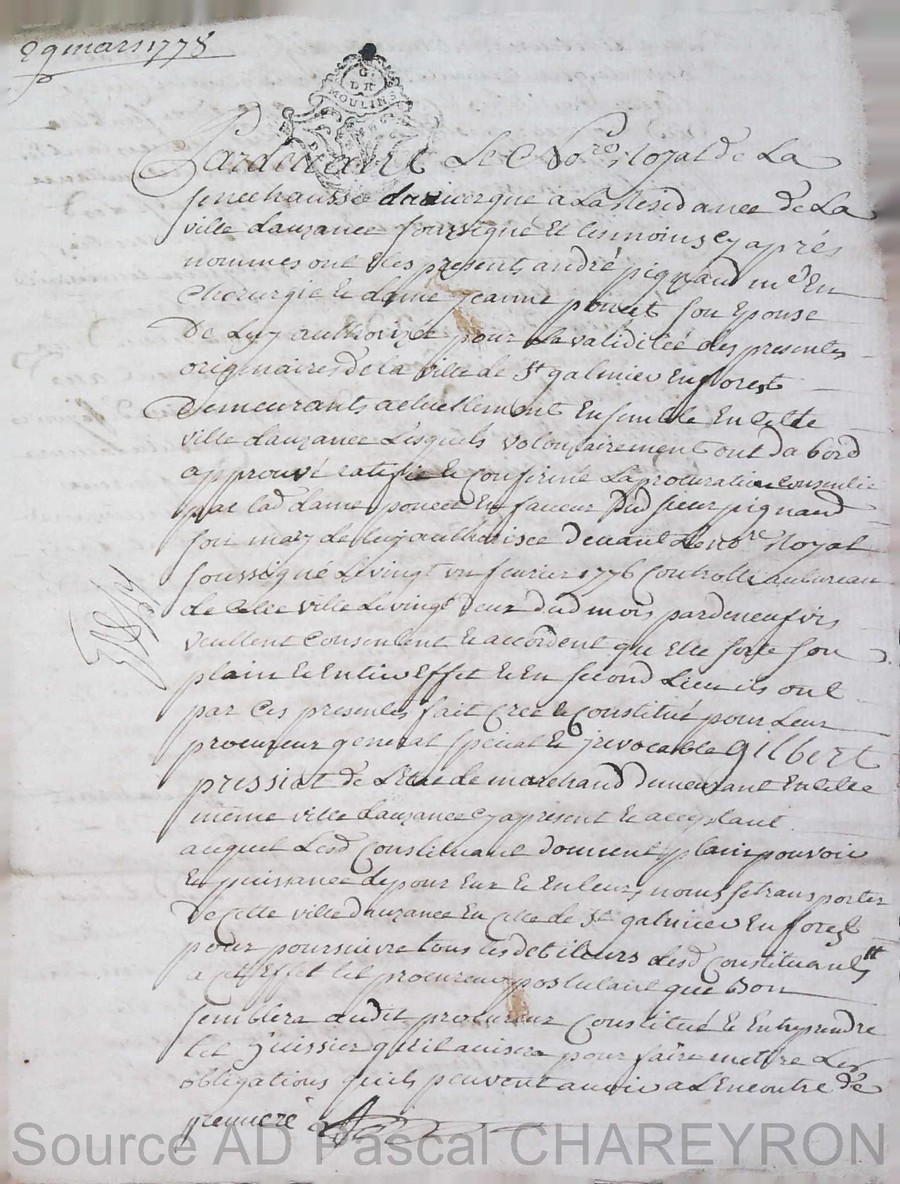 29 mars 1778
G. DE MOULINS
Pardevant Le C Nore Royal de La
senechaussé dauvergne a La Residance de La
ville dauzance soussigné Et tesmoins cy après
nommes ont Etes presents andré pignaud me En
Chirurgie & dame jeanne poncet son Epouse
De Luy authorizeé pour La validiteé des presentes
originaires de La ville de st galmier En forest
Demeurants actuellement Ensemble En Cette
ville dauzance Lesquels volontairement ont dabord
approuvé ratifié & Confirmé La procuration Consentie
par lad dame poncet En faveur Dud sieur pignaud
son mary de luy authorisée devant Le nore Royal
soussigné Le vingt un fevrier 1776 Controllé au bureau
de Cette ville Le vingt deux dud mois par deneufvis
veullent Consentent & accordent que Elle sorte son
plain & Entier Effet & En second Lieu ils ont
par Ces presentes fait Creé & Constitué pour Leur
procureur general special & jrevocable Gilbert
pressiat de L'Etat de marchand demeurant En Cette
même ville dauzance cy apresent & acceptant
auquel Lesd Constituant donnent plain pouvoir
& puissance de pour Eux & En leurs noms se transporter
De Cette ville Dauzance En Celle de st galmier En forest
pour poursuivre tous les debiteurs desd Constituants
a Cet Effet tel procureur postulaire que Bon
semblera audit procureur Constitué & Entreprendre
tel huissier quil avisera pour faire mettre Les
obligations quils peuvent avoir a L'Encontre de
premiere
Source AD Pascal CHAREYRON